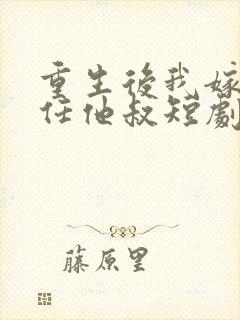 重生後我嫁
任他叔短劇
藤原里